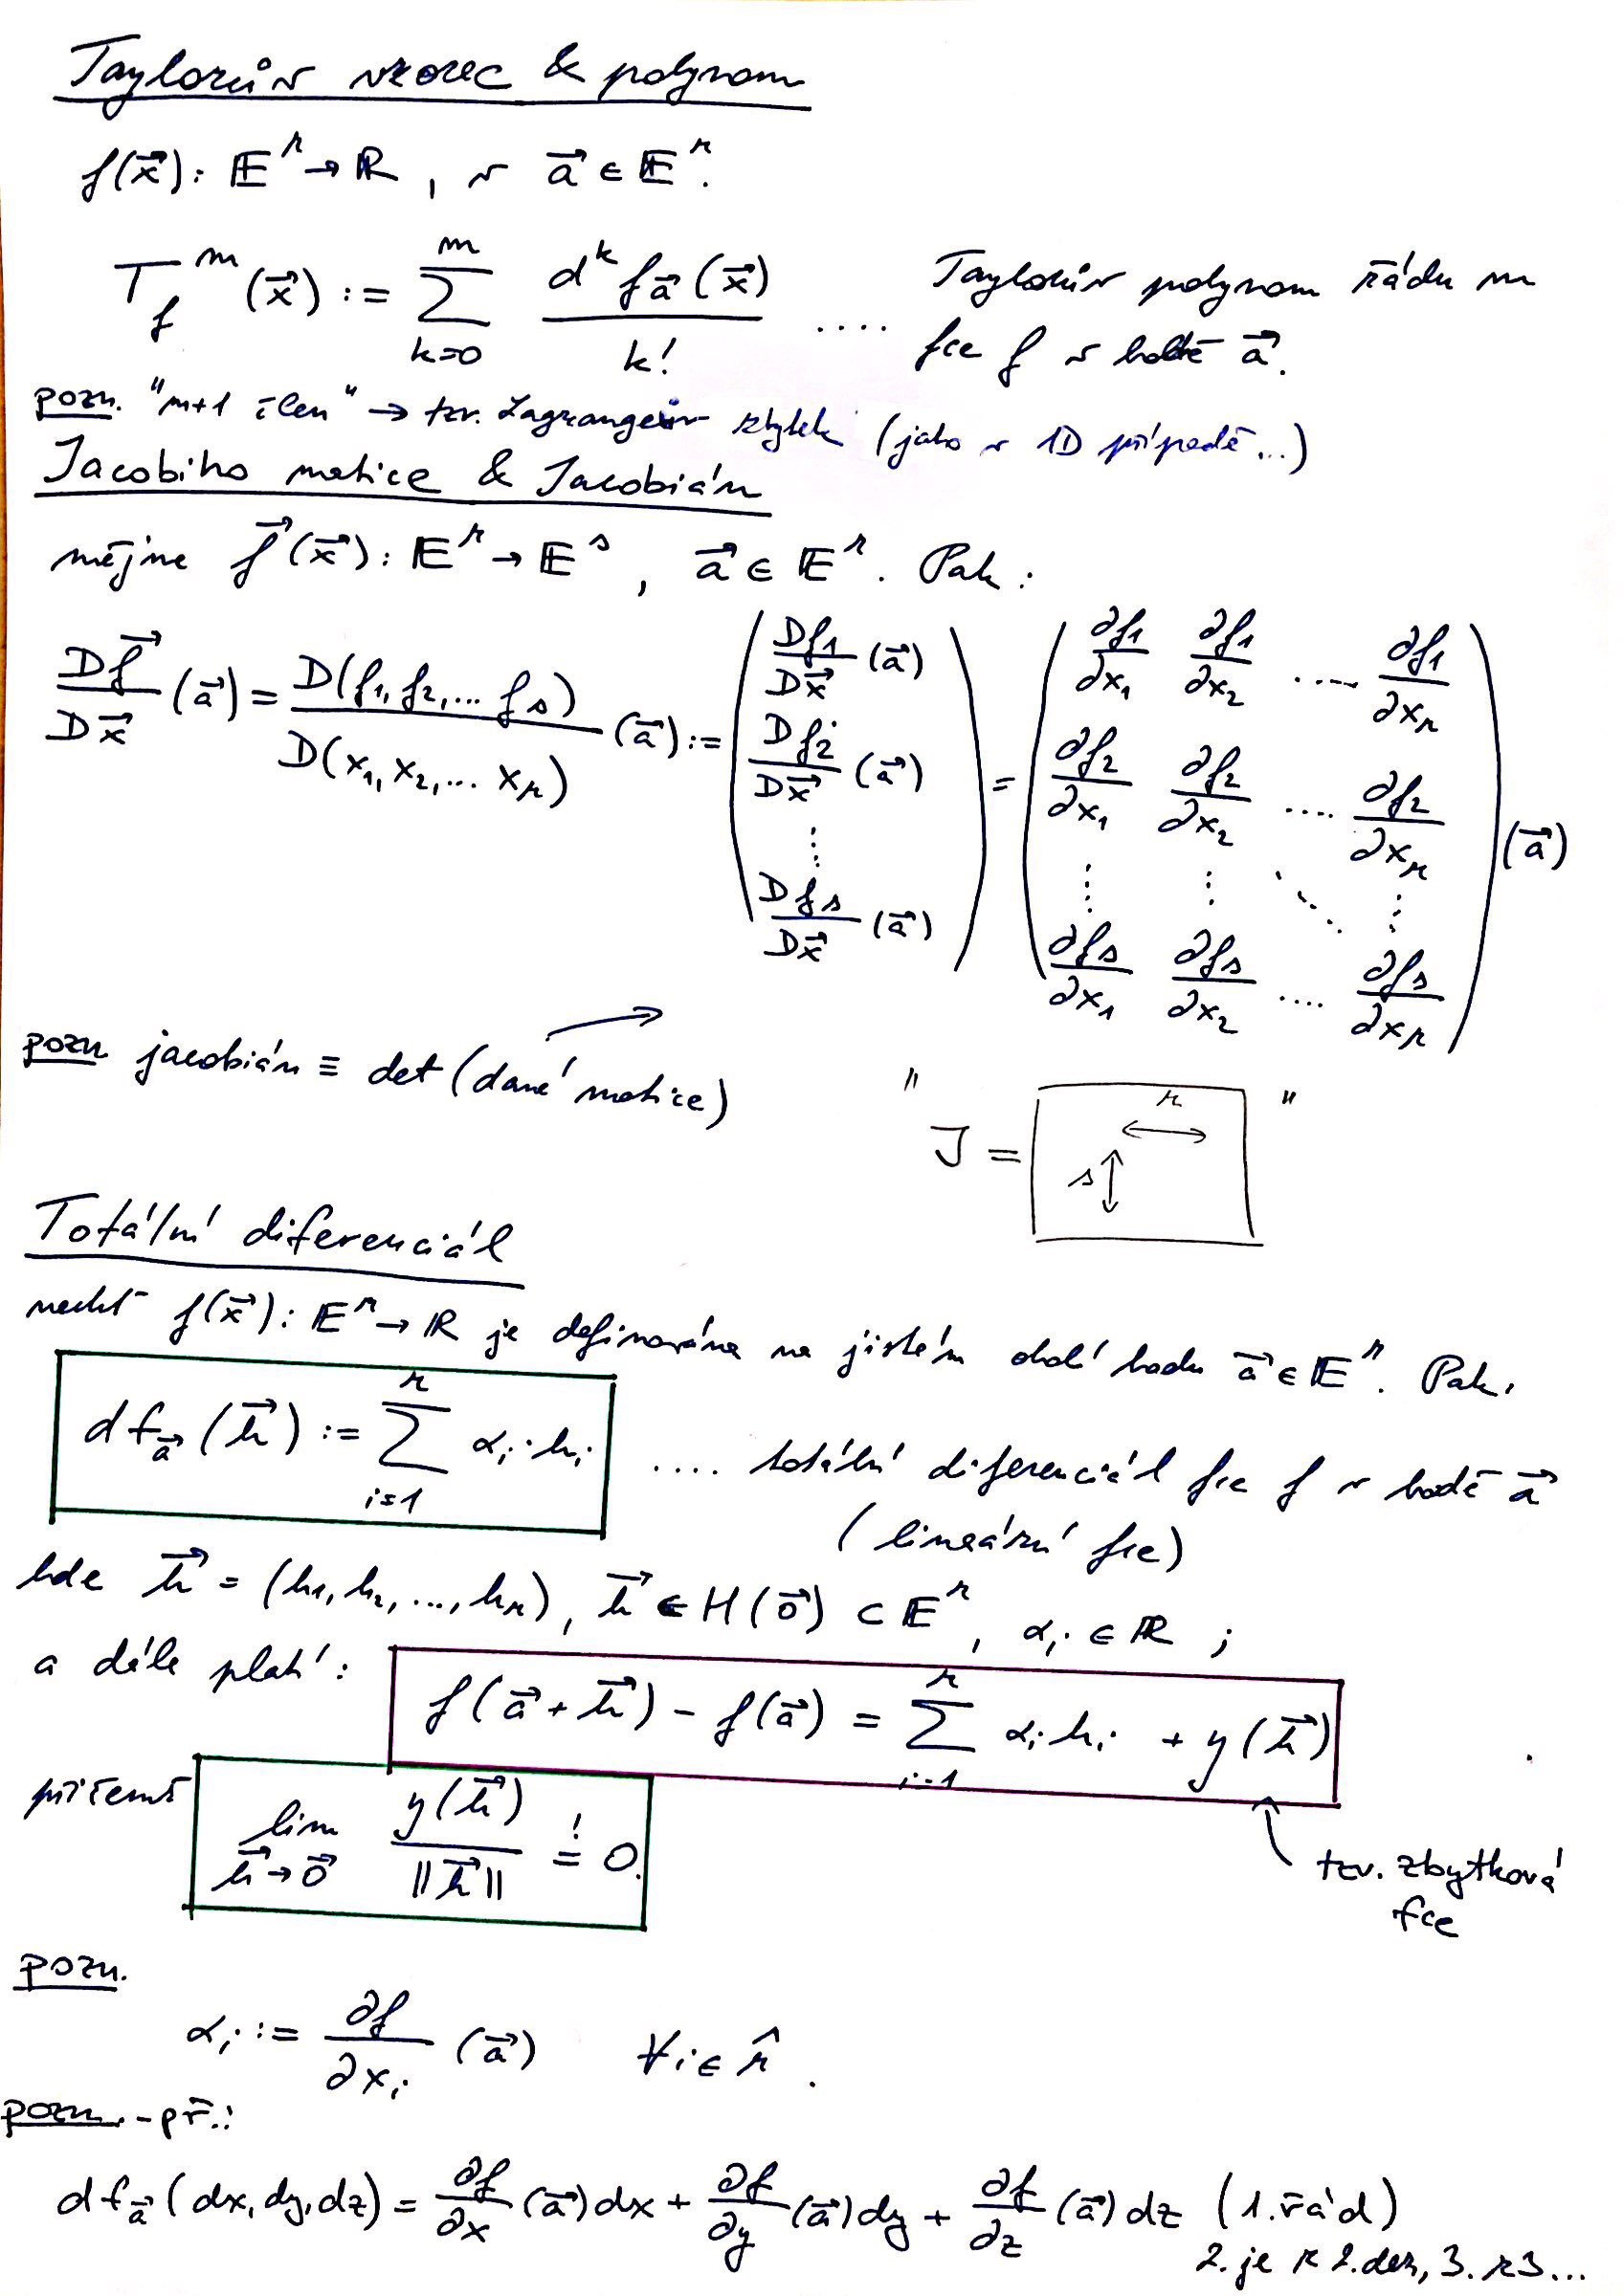 Taylorův vzorec & polynom
f(x⃗): 𝔼ʳ → ℝ, v a⃗ ∈ 𝔼ʳ.
T_f^m (x⃗) := ∑_{k=0}^{m} d^k f_a⃗ (x⃗) / k! .... Taylorův polynom řádu m
fce f v bodě a⃗.
pozn. "m+1 člen" → tzv. Lagrangeův zbytek (jako v 1D případě...)
Jacobiho matice & Jacobián
mějme f⃗(x⃗): 𝔼ʳ → 𝔼ˢ, a⃗ ∈ 𝔼ʳ. Pak:
Df⃗/Dx⃗ (a⃗) = D(f₁, f₂, ... f_s)/D(x₁, x₂, ... x_r) (a⃗) := ( Df₁/Dx⃗ (a⃗) ; Df₂/Dx⃗ (a⃗) ; ⋮ ; Df_s/Dx⃗ (a⃗) ) = ( ∂f₁/∂x₁ ∂f₁/∂x₂ .... ∂f₁/∂x_r ; ∂f₂/∂x₁ ∂f₂/∂x₂ .... ∂f₂/∂x_r ; ⋮ ⋮ ⋱ ⋮ ; ∂f_s/∂x₁ ∂f_s/∂x₂ .... ∂f_s/∂x_r ) (a⃗)
pozn jacobián ≡ det (dané matice)
" J = r s "
Totální diferenciál
nechť f(x⃗): 𝔼ʳ → ℝ je definována na jistém okolí bodu a⃗ ∈ 𝔼ʳ. Pak:
df_a⃗ (h⃗) := ∑_{i=1}^{r} αᵢ·hᵢ .... totální diferenciál fce f v bodě a⃗
(lineární fce)
kde h⃗ = (h₁, h₂, ..., h_r), h⃗ ∈ H(0⃗) ⊂ 𝔼ʳ, αᵢ ∈ ℝ ;
a dále platí: f(a⃗ + h⃗) - f(a⃗) = ∑_{i=1}^{r} αᵢ hᵢ + y(h⃗)
přičemž lim_{h⃗→0⃗} y(h⃗)/||h⃗|| =! 0.
tzv. zbytková
fce
pozn.
αᵢ := ∂f/∂xᵢ (a⃗) ∀i ∈ r̂.
pozn. - př.:
df_a⃗ (dx, dy, dz) = ∂f/∂x (a⃗) dx + ∂f/∂y (a⃗) dy + ∂f/∂z (a⃗) dz (1. řád)
2. je z 2. der, 3. z 3...